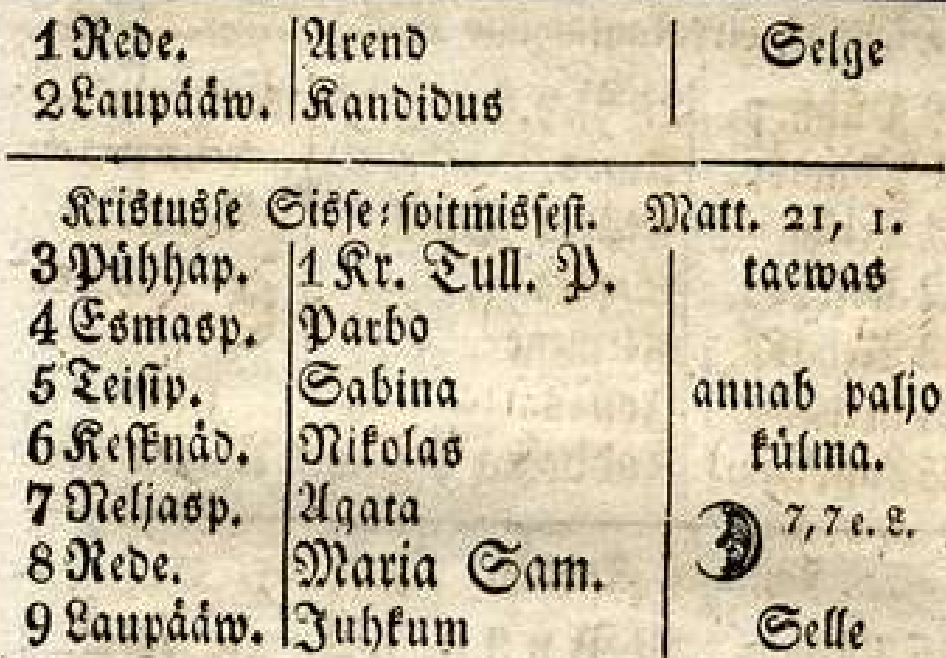 1 Rede. Arend Selge
2 Laupååw. Kandidus
Kristusse Sisse-soitmissest. Matt. 21, 1.
3 Pühhap. 1 Kr. Tull. P. taewas
4 Esmasp. Parbo
5 Teisip. Sabina annab paljo
6 Kesknåd. Nikolas külma.
7 Neljasp. Agata 7, 7 e. L.
8 Rede. Maria Sam.
9 Laupååw. Juhkum Selle